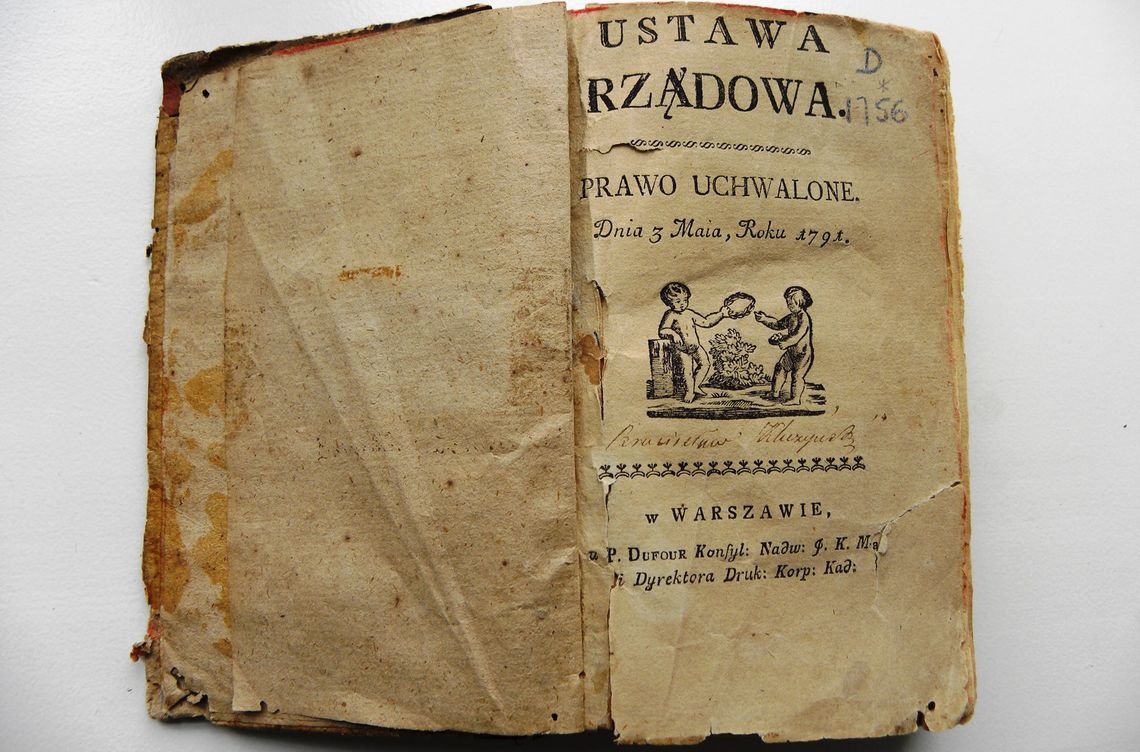 USTAWA
RZĄDOWA.
D
*
1756
PRAWO UCHWALONE.
Dnia 3 Maia, Roku 1791.
w WARSZAWIE,
u P. DUFOUR Konſyl: Nadw: J. K. M
i Dyrektora Druk: Korp: Kad: